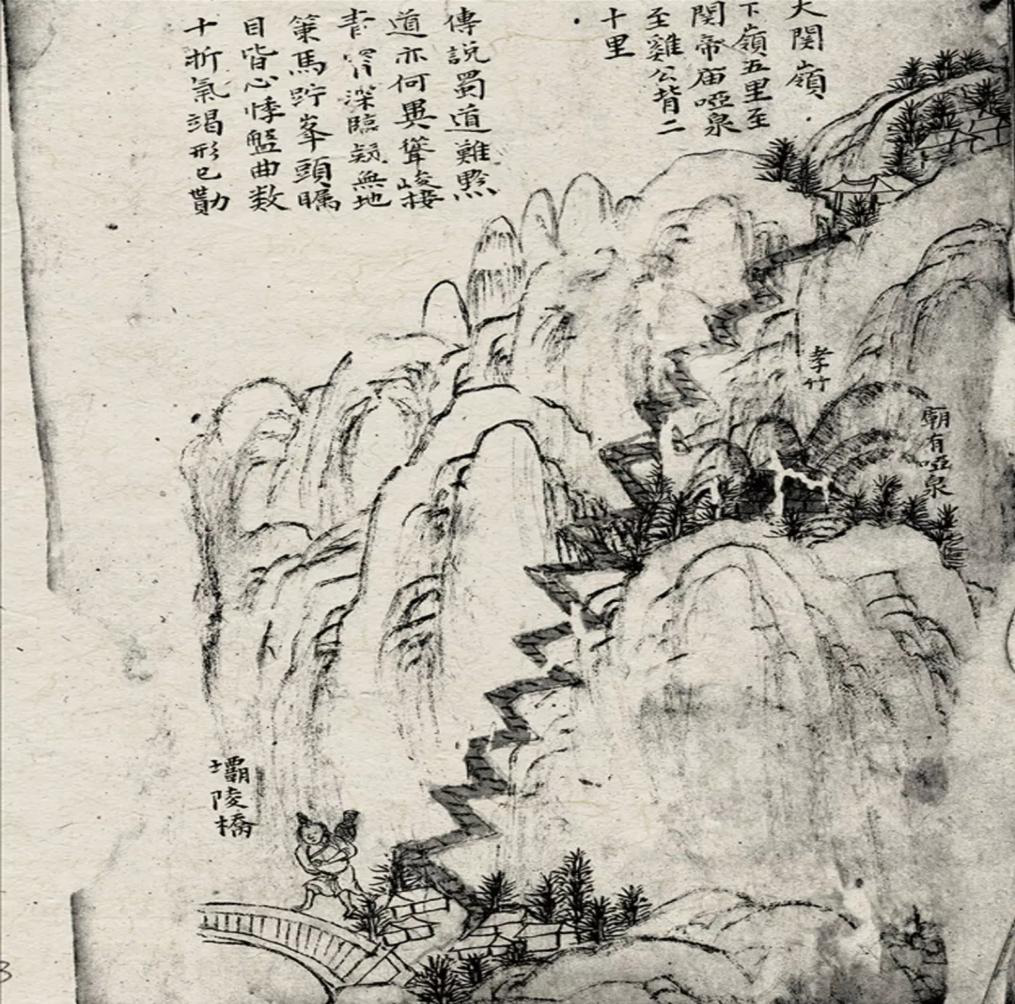 大関嶺
下嶺五里至
関帝庙啞泉
至雞公背二
十里
傳説蜀道難黔
道亦何異聳峻接
青霄深臨疑無地
策馬貯峯頭瞩
目眥心悸盤曲数
十折氣竭形已勩
孝竹
廟有啞泉
壩陵橋